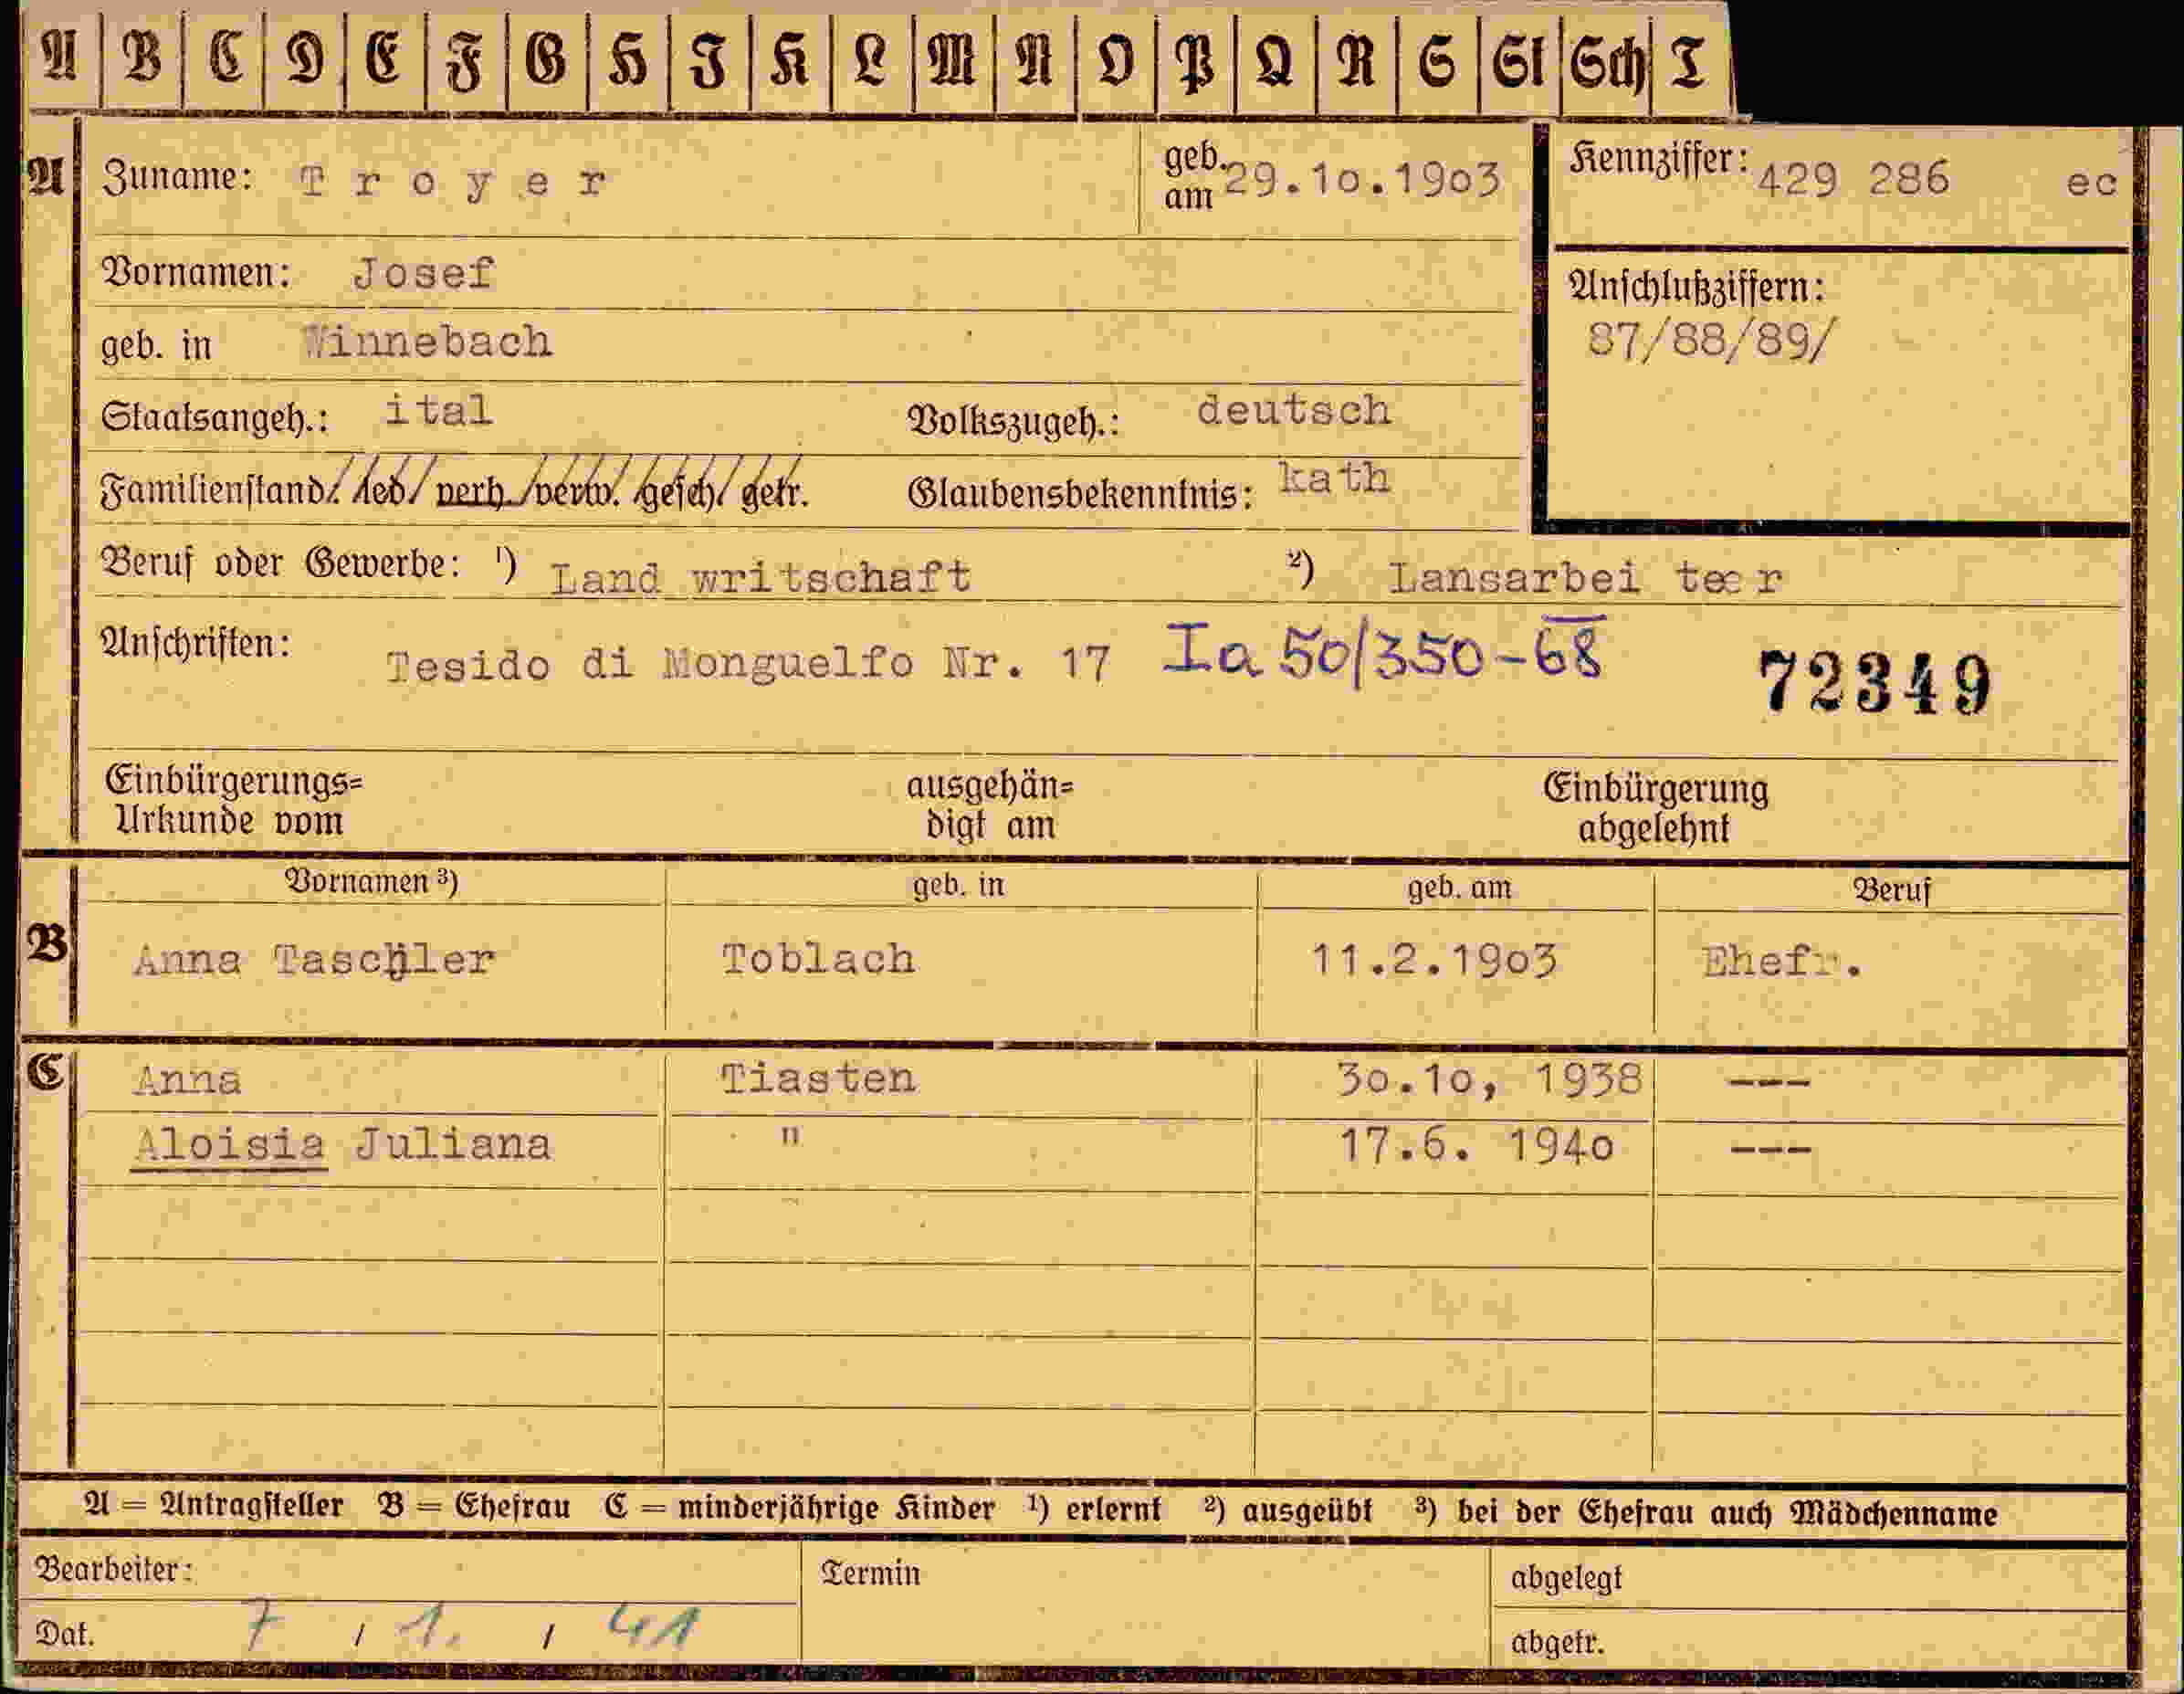 A B C D E F G H I K L M N O P Q R S St Sch T
A Zuname: Troyer geb. am 29.10.1903 Kennziffer: 429 286 ec
Vornamen: Josef
Anschlußziffern:
87/88/89/
geb. in Winnebach
Staatsangeh.: ital Volkszugeh.: deutsch
Familienstand: led. verh. verw. gesch. getr. Glaubensbekenntnis: kath
Beruf oder Gewerbe: ¹) Land writschaft ²) Lansarbei teer
Anschriften: Tesido di Monguelfo Nr. 17 Ia 50/350-68 72349
Einbürgerungs= ausgehän= Einbürgerung
Urkunde vom digt am abgelehnt
Vornamen ³) geb. in geb. am Beruf
B Anna Taschler Toblach 11.2.1903 Ehefr.
C Anna Tiasten 30.10, 1938 ---
Aloisia Juliana " 17.6. 1940 ---
A = Antragsteller B = Ehefrau C = minderjährige Kinder ¹) erlernt ²) ausgeübt ³) bei der Ehefrau auch Mädchenname
Bearbeiter: Termin abgelegt
Dat. 7 / 1. / 41 abgetr.